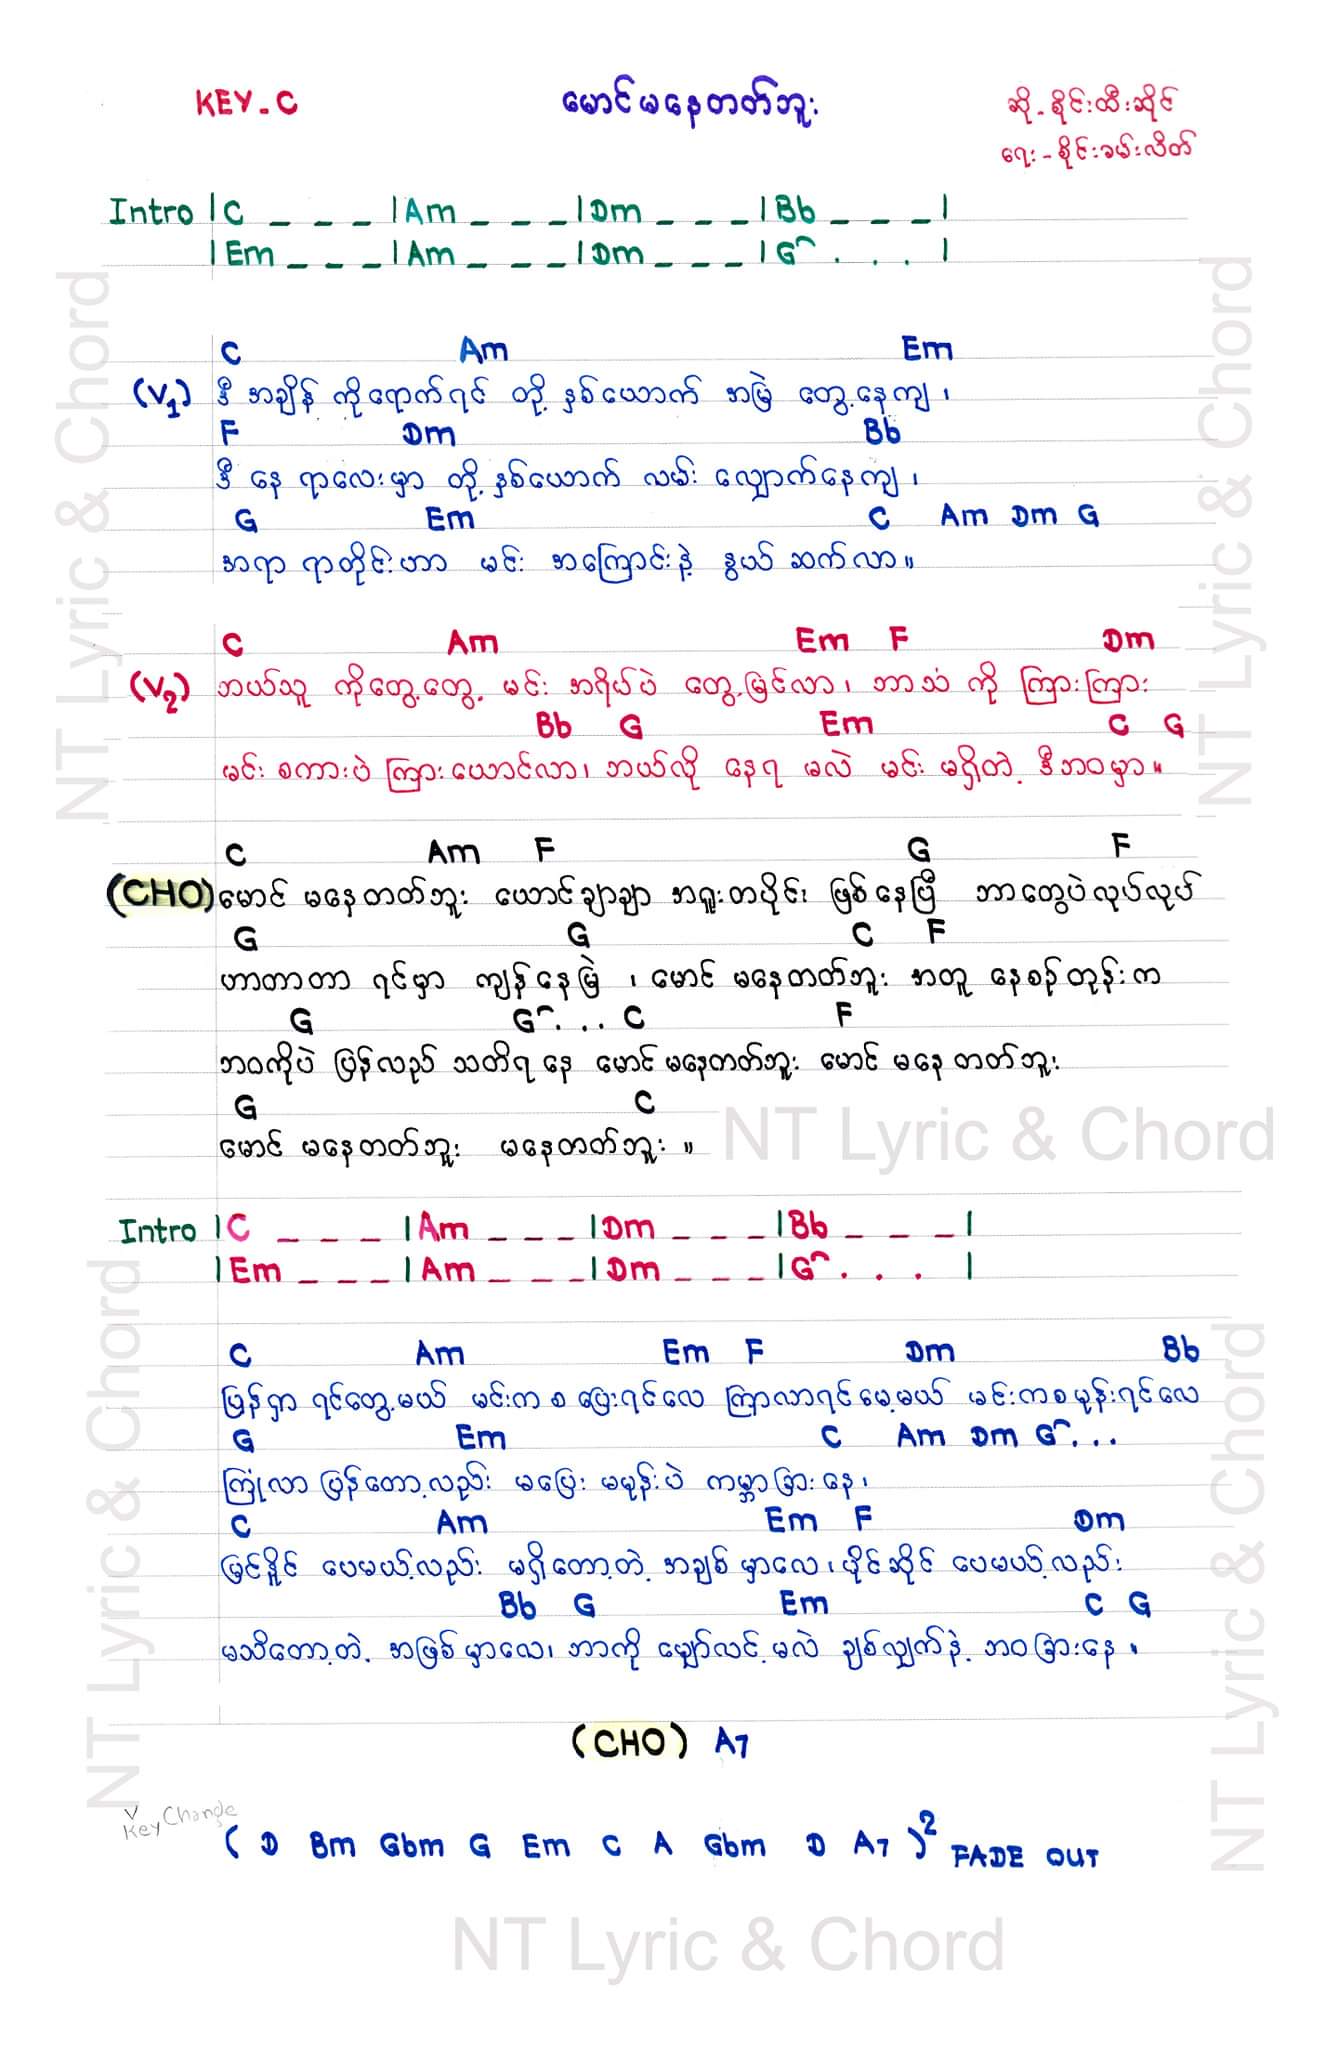 KEY - C
မောင်မနေတတ်ဘူး
ဆို - စိုင်းထီးဆိုင်
ရေး - စိုင်းခမ်းလိတ်
Intro |C _ _ _ |Am _ _ _ |Dm _ _ _ |Bb _ _ _ |
|Em _ _ _ |Am _ _ _ |Dm _ _ _ |G⌒ . . . |
C Am Em
(V1) ဒီ အချိန် ကိုရောက်ရင် တို့ နှစ်ယောက် အမြဲ တွေ့နေကျ ၊
F Dm Bb
ဒီ နေ ရာလေးမှာ တို့ နှစ်ယောက် လမ်း လျှောက်နေကျ ၊
G Em C Am Dm G
အရာ ရာတိုင်းဟာ မင်း အကြောင်းနဲ့ နွယ် ဆက်လာ ။
C Am Em F Dm
(V2) ဘယ်သူ ကိုတွေ့တွေ့ မင်း အရိပ်ပဲ တွေ့မြင်လာ ၊ ဘာသံ ကို ကြားကြား
Bb G Em C G
မင်း စကားပဲ ကြားယောင်လာ ၊ ဘယ်လို နေရ မလဲ မင်း မရှိတဲ့ ဒီဘဝမှာ ။
C Am F G F
(CHO) မောင် မနေတတ်ဘူး ယောင်ချာချာ အရူးတပိုင်း ဖြစ်နေပြီ ဘာတွေပဲလုပ်လုပ်
G G C F
ဟာတာတာ ရင်မှာ ကျန်နေမြဲ ၊ မောင် မနေတတ်ဘူး အတူ နေစဉ်တုန်းက
G G⌒. . . C F
ဘဝကိုပဲ ပြန်လည် သတိရ နေ မောင် မနေတတ်ဘူး မောင် မနေ တတ်ဘူး
G C
မောင် မနေတတ်ဘူး မနေတတ်ဘူး ။
Intro |C _ _ _ |Am _ _ _ |Dm _ _ _ |Bb _ _ _ |
|Em _ _ _ |Am _ _ _ |Dm _ _ _ |G⌒. . . |
C Am Em F Dm Bb
ပြန်ရှာ ရင်တွေ့မယ် မင်းက စ ပြေးရင်လေ ကြာလာရင်မေ့မယ် မင်းကစမုန်းရင်လေ
G Em C Am Dm G⌒. . .
ကြုံလာ ပြန်တော့လည်း မပြေး မမုန်းပဲ ကမ္ဘာခြားနေ ၊
C Am Em F Dm
မြင်နိုင် ပေမယ့်လည်း မရှိတော့တဲ့ အချစ် မှာလေ ၊ ပိုင်ဆိုင် ပေမယ့်လည်း
Bb G Em C G
မသိတော့တဲ့ အဖြစ်မှာလေ ၊ ဘာကို မျှော်လင့် မလဲ ချစ်လျှက်နဲ့ ဘဝခြားနေ ။
(CHO) A7
Key Change
( D Bm Gbm G Em C A Gbm D A7 )2 FADE OUT
NT Lyric & Chord
NT Lyric & Chord
NT Lyric & Chord
NT Lyric & Chord
NT Lyric & Chord
NT Lyric & Chord